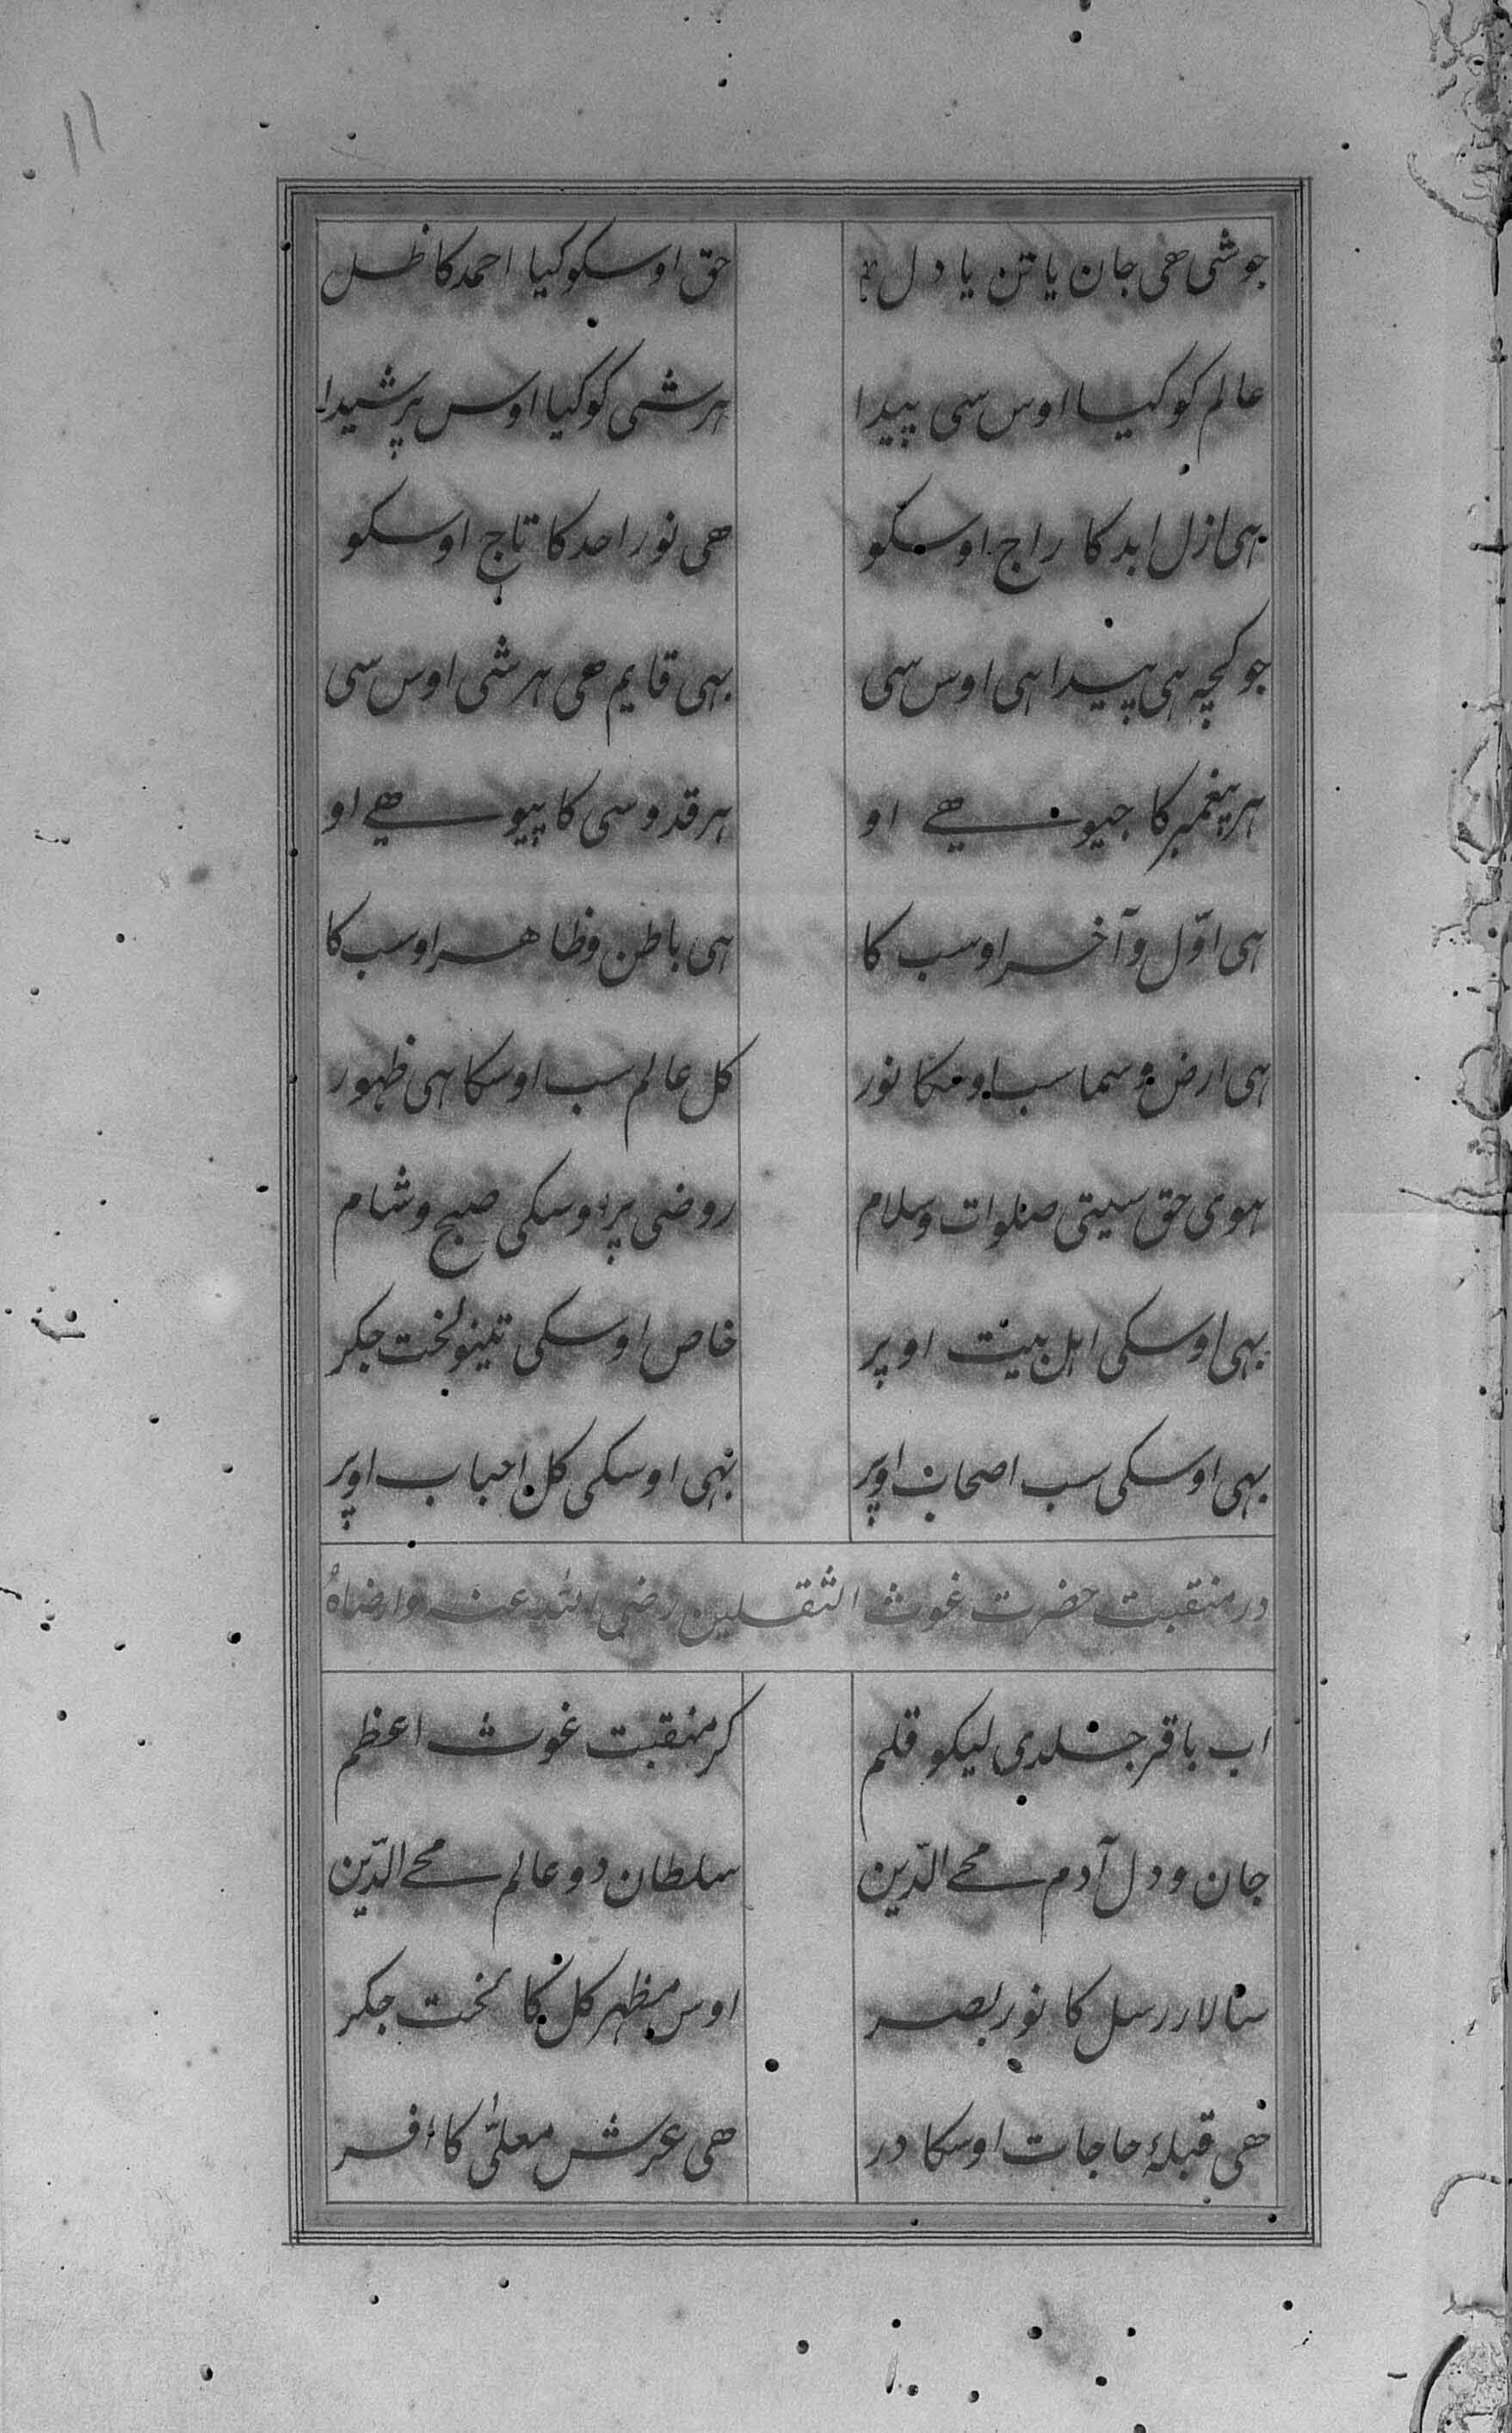 ۱۱
جو شی هی جان یا تن یا دل حق اوسکو کیا احمد کا ظل
عالم کو کیا اوس سی پیدا هر شی کو کیا اوس پر شیدا
بهی ازل ابد کا راج اوسکو هی نور احد کا تاج اوسکو
جو کچه هی پیدا هی اوس سی بهی قایم هی هر شی اوس سی
هر پیغمبر کا جیو هے او هر قدوسی کا پیو هے او
هی اوّل و آخر او سب کا هی باطن و ظاهر او سب کا
هی ارض و سما سب اوسکا نور کل عالم سب اوسکا هی ظهور
هوی حق سیتی صلوات و سلام روضی پر اوسکی صبح و شام
بهی اوسکی اهل بیت اوپر خاص اوسکی تینو لخت جکر
بهی اوسکی سب اصحاب اوپر بهی اوسکی کل احباب اوپر
در منقبت حضرت غوث الثقلین رضی الله عنه وارضاهُ
اب باقر جلدی لیکو قلم کر منقبت غوث اعظم
جان و دل آدم محے الدّین سلطان دو عالم محے الدّین
سالار رسل کا نور بصر اوس مظهر کل کا لخت جکر
هی قبلهٔ حاجات اوسکا در هی عرش معلّٰی کا افسر